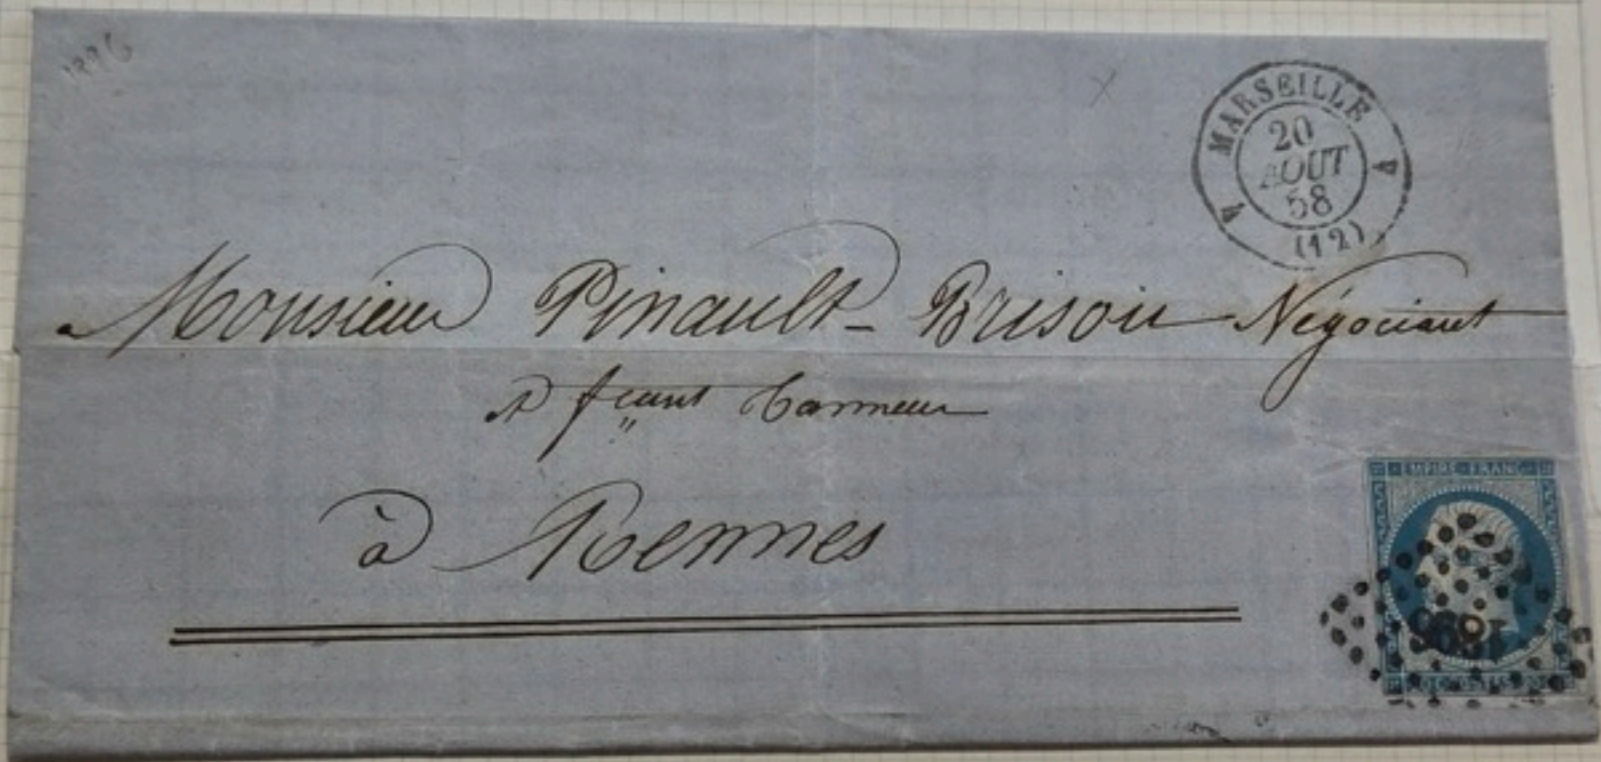 MARSEILLE
20
AOUT
58
(12)
Monsieur Pinault-Brisou Négociant
à Rennes
EMPIRE FRANC
1896